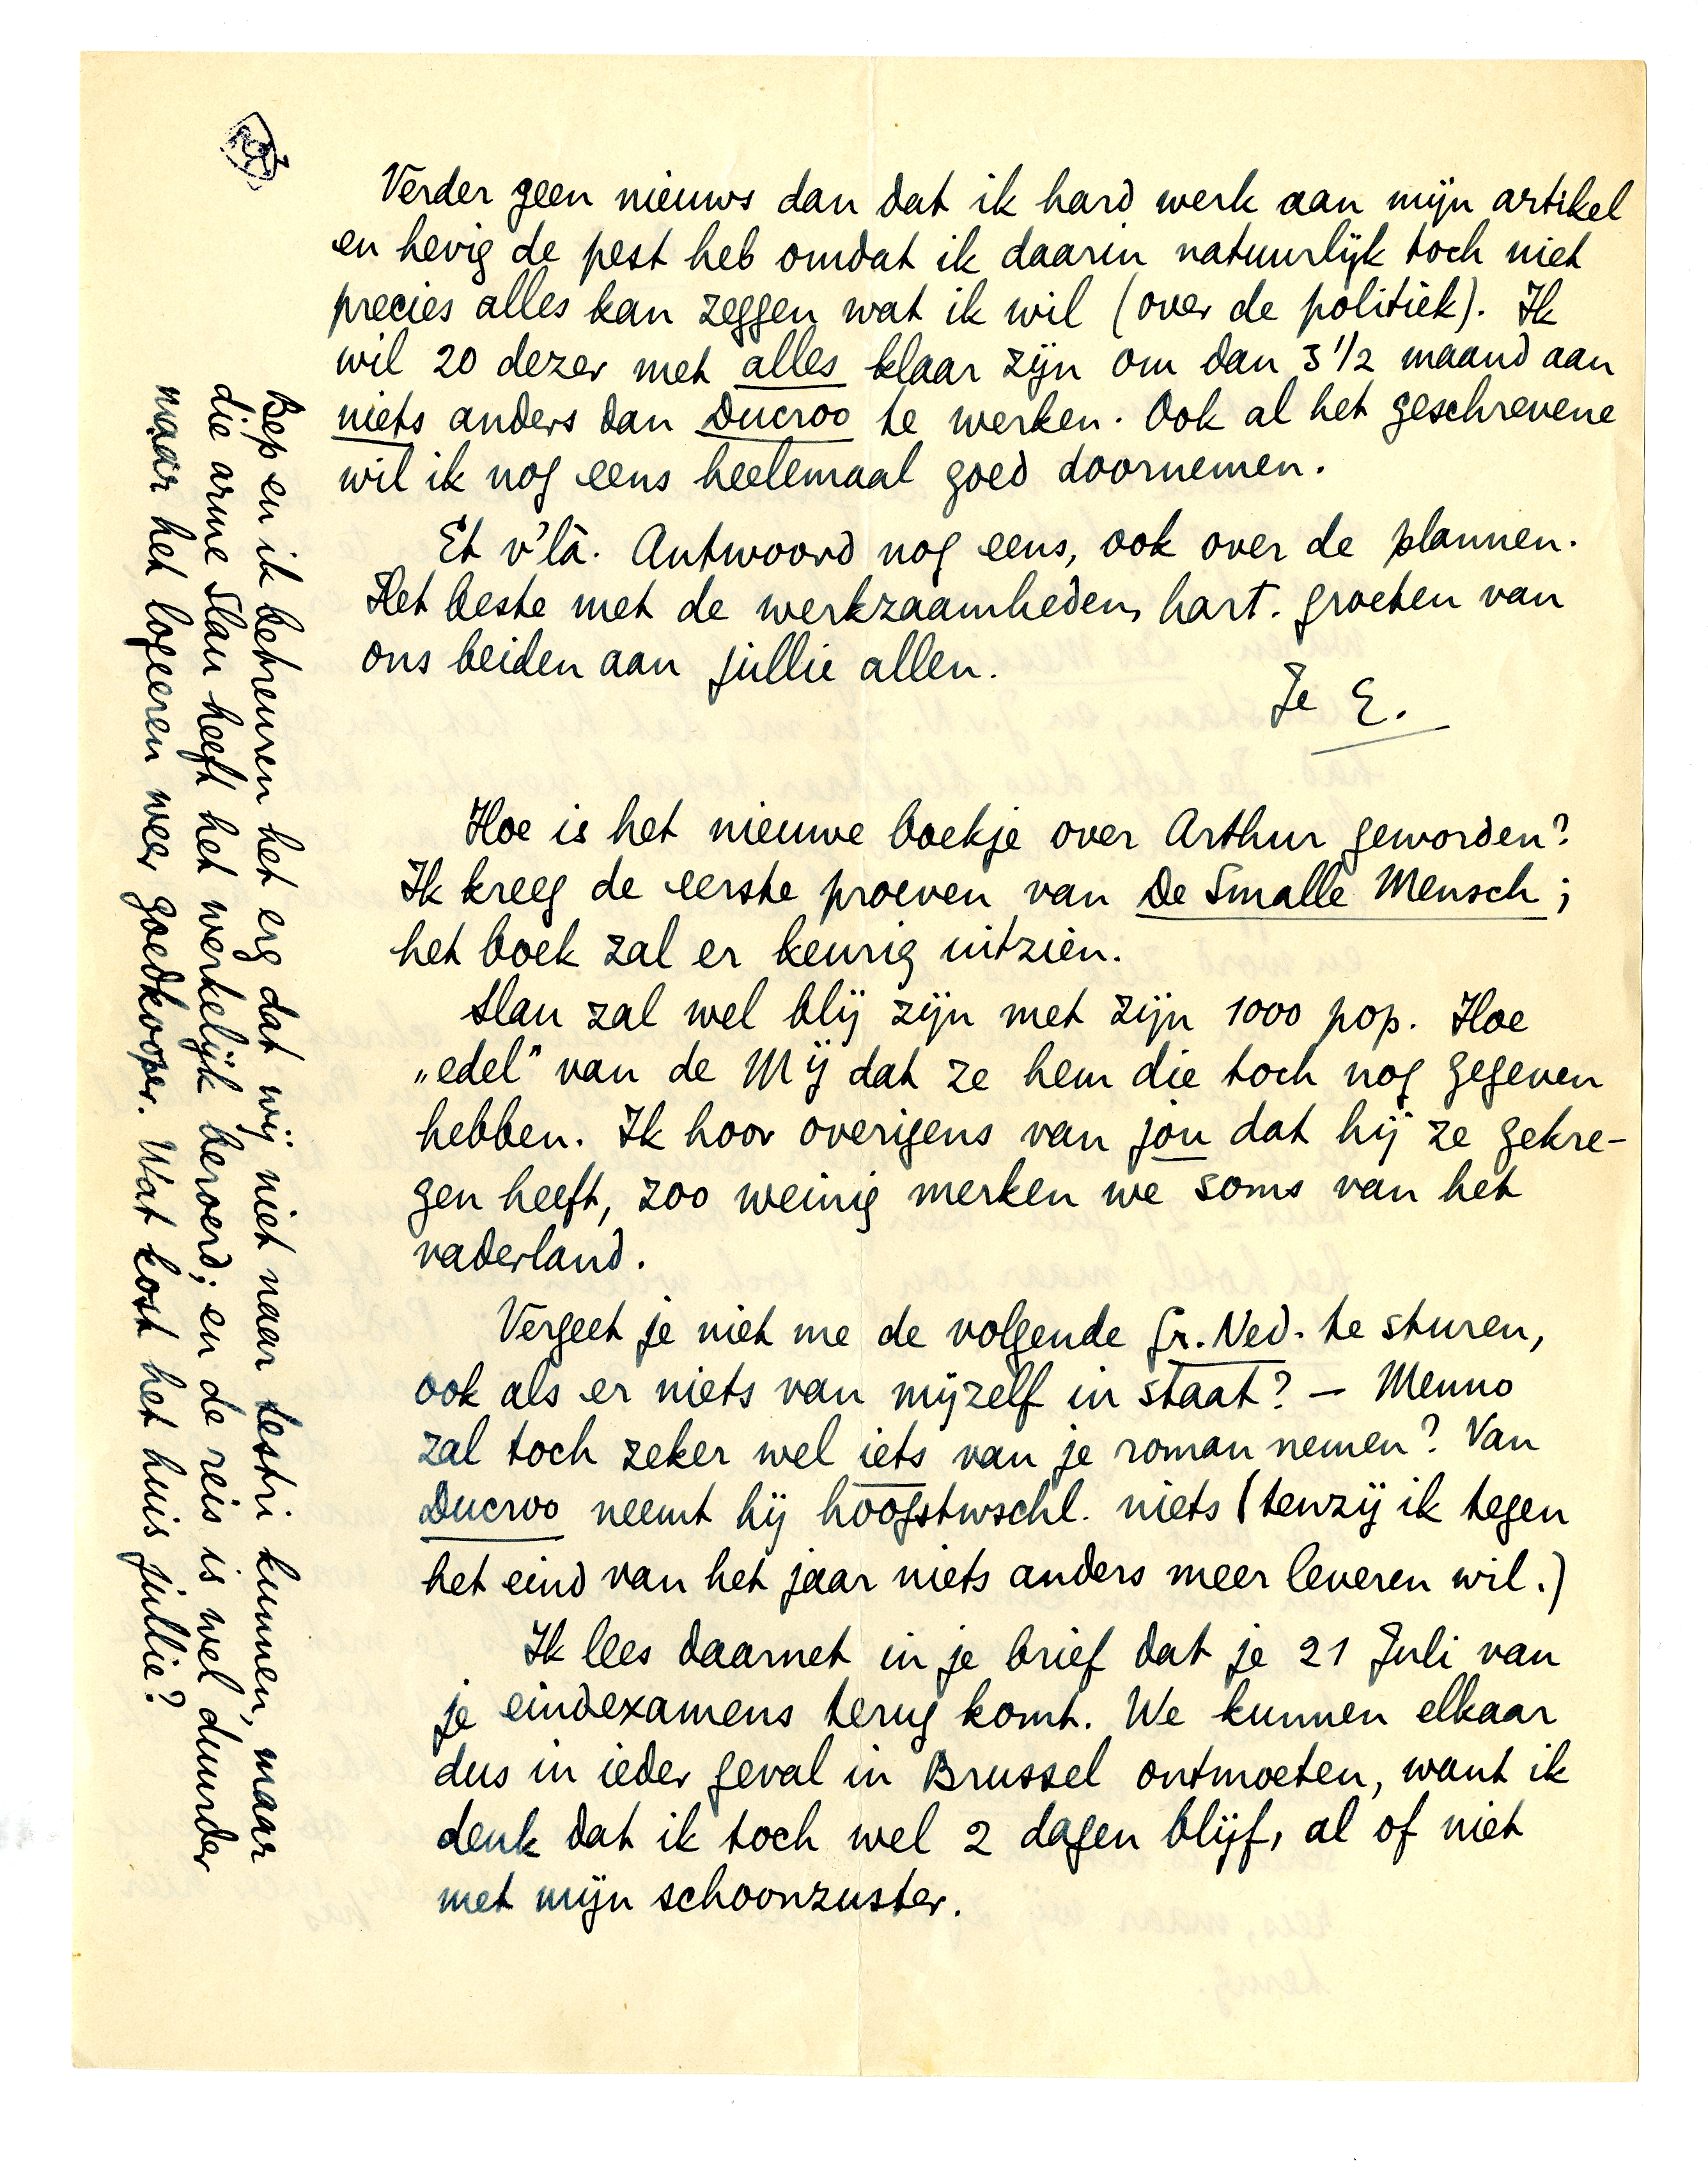 Verder geen nieuws dan dat ik hard werk aan mijn artikel
en hevig de pest heb omdat ik daarin natuurlijk toch niet
precies alles kan zeggen wat ik wil (over de politiek). Ik
wil 20 dezer met alles klaar zijn om dan 3 1/2 maand aan
niets anders dan Ducroo te werken. Ook al het geschrevene
wil ik nog eens heelemaal goed doornemen.
Et v'là. Antwoord nog eens, ook over de plannen.
Het beste met de werkzaamheden, hart. groeten van
ons beiden aan jullie allen.
Je E.
Hoe is het nieuwe boekje over Arthur geworden?
Ik kreeg de eerste proeven van De Smalle Mensch;
het boek zal er keurig uitzien.
Slau zal wel blij zijn met zijn 1000 pop. Hoe
„edel” van de Mij dat ze hem die toch nog gegeven
hebben. Ik hoor overigens van jou dat hij ze gekre-
gen heeft, zoo weinig merken we soms van het
vaderland.
Vergeet je niet me de volgende Gr. Ned. te sturen,
ook als er niets van mijzelf in staat? — Menno
zal toch zeker wel iets van je roman nemen? Van
Ducroo neemt hij hoogstwschl. niets (tenzij ik tegen
het eind van het jaar niets anders meer leveren wil.)
Ik lees daarnet in je brief dat je 21 Juli van
je eindexamens terug komt. We kunnen elkaar
dus in ieder geval in Brussel ontmoeten, want ik
denk dat ik toch wel 2 dagen blijf, al of niet
met mijn schoonzuster.
Bep en ik betreuren het erg dat wij niet naar Sestri kunnen, maar
die arme Slau heeft het werkelijk beroerd; en de reis is wel duurder
maar het logeeren weer goedkooper. Wat kost het huis jullie?